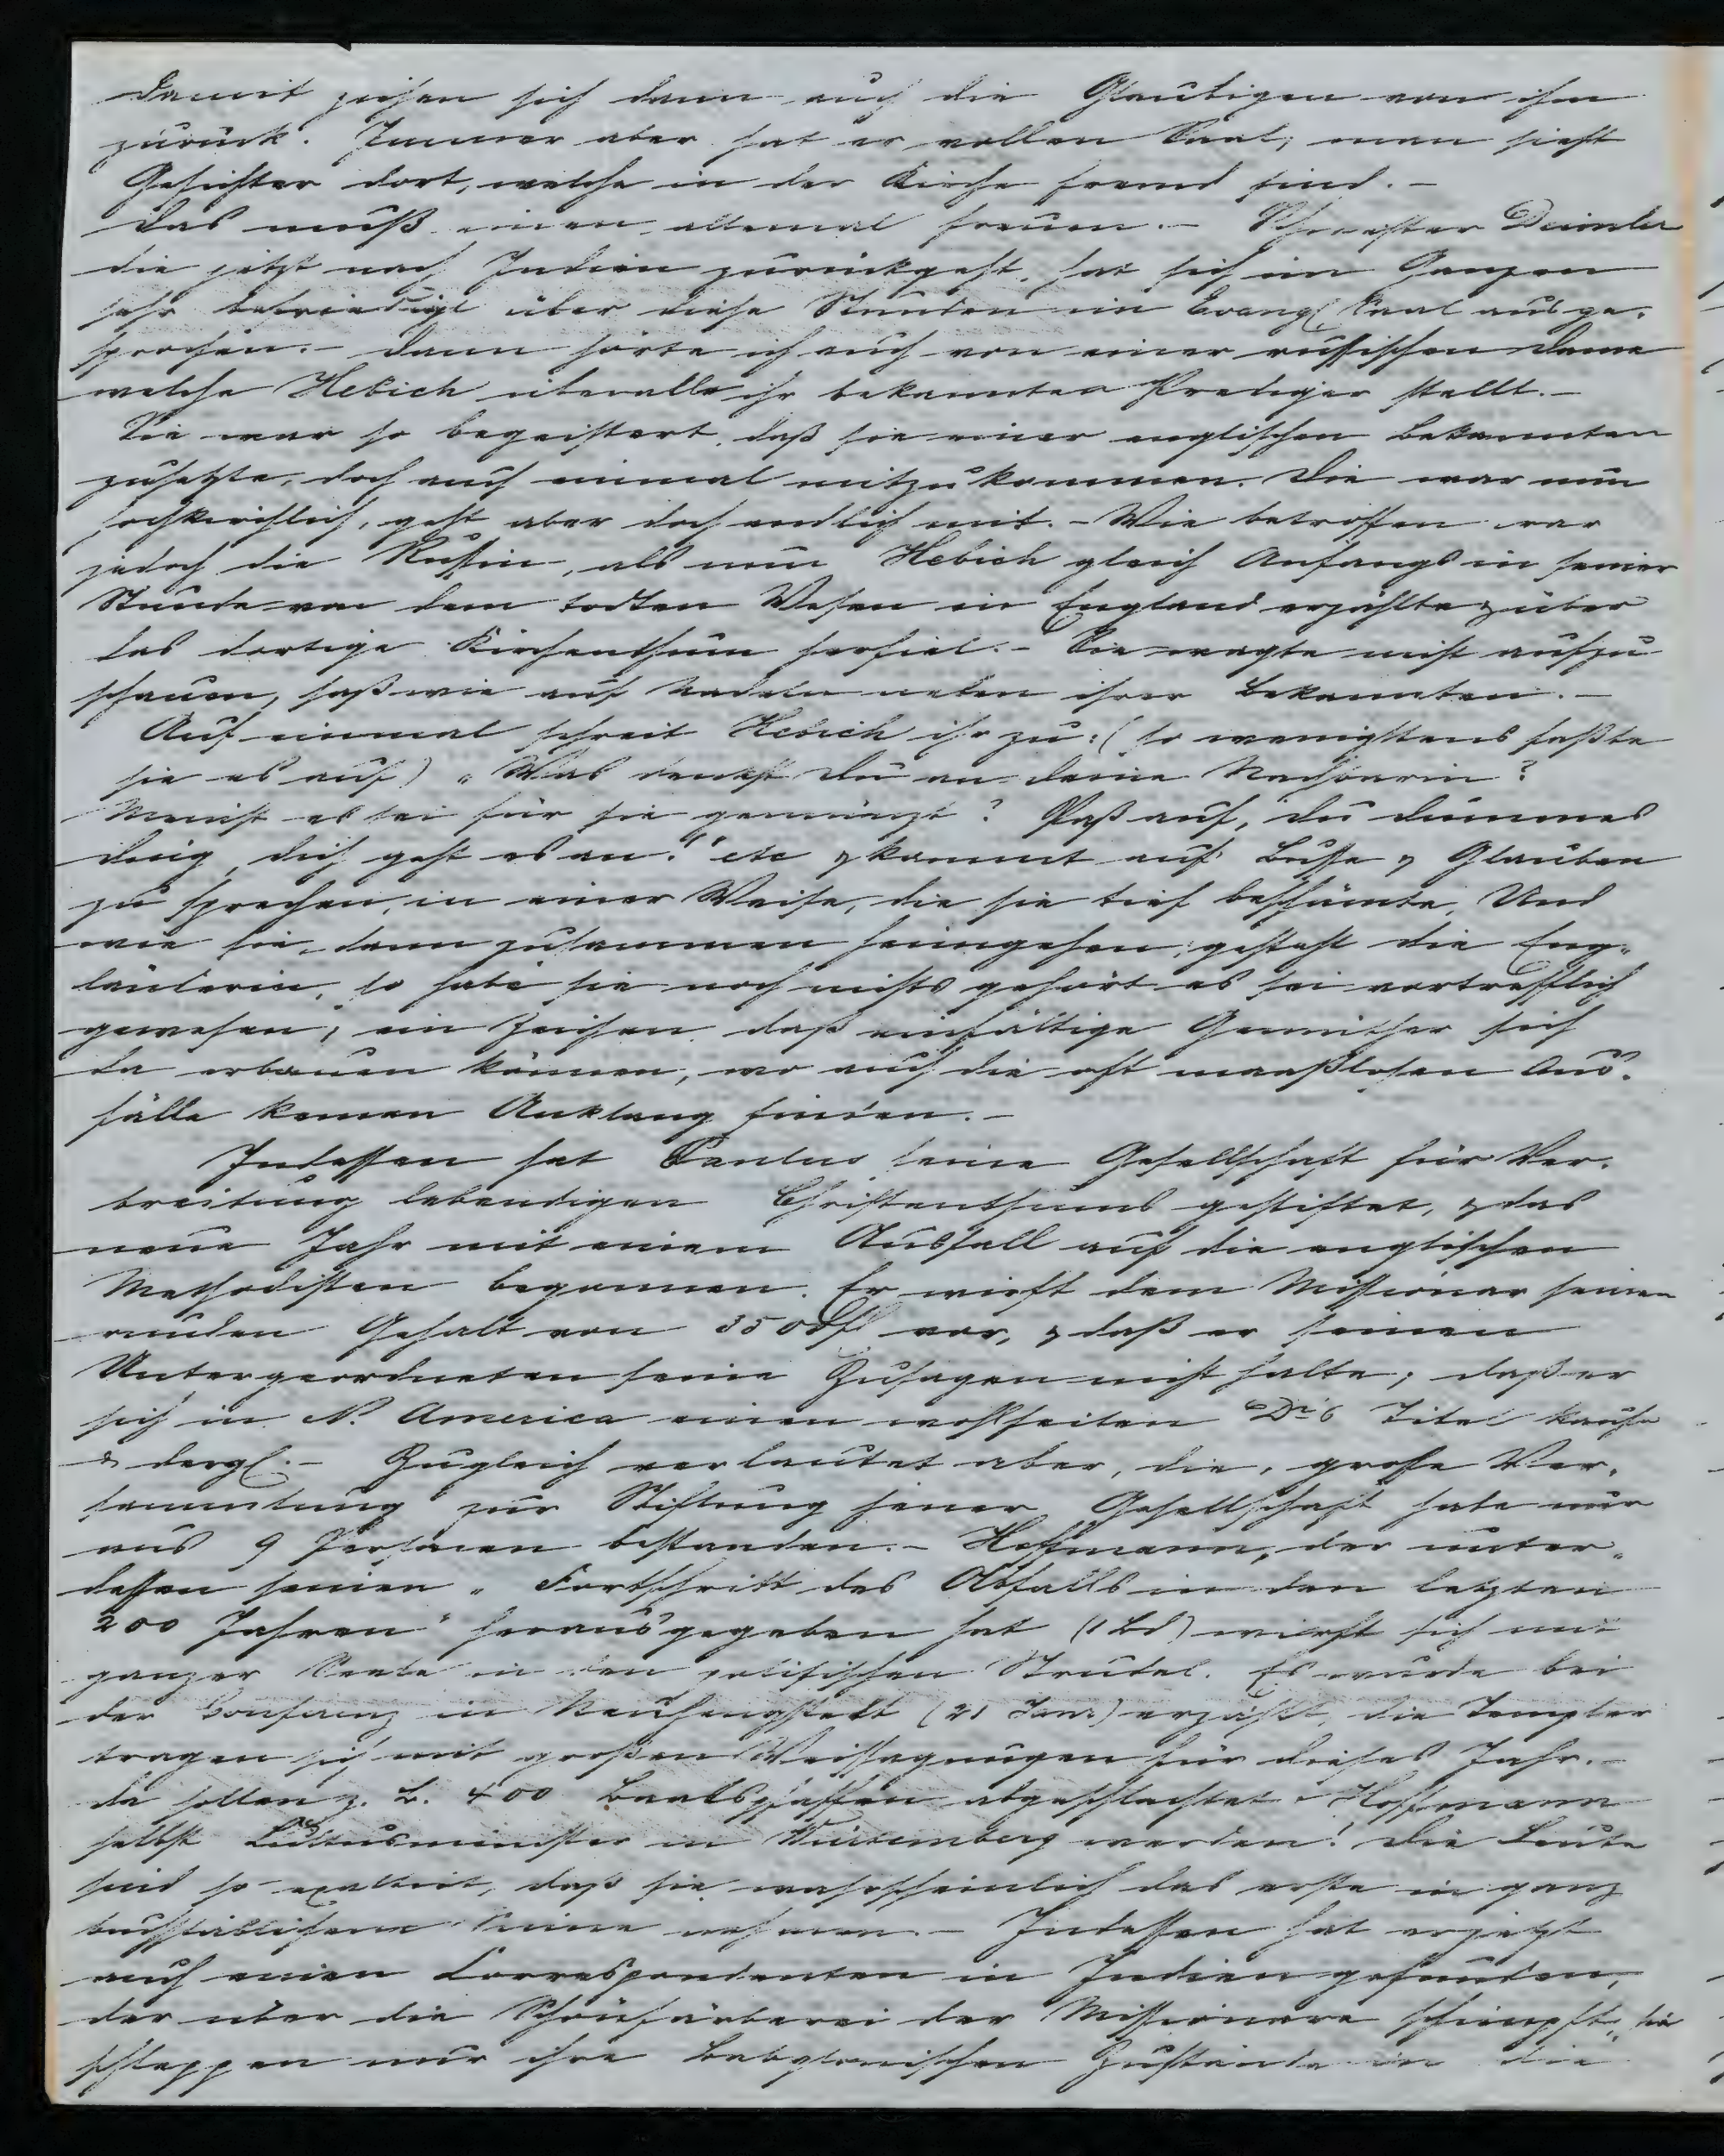 damit ziehen sich dann auch die Gläubigen von ihm
zurück. Immer aber hat er vollen Saal; man sieht
Gesichter dort, welche in der Kirche fremd sind. –
Das muß einen allemal freuen. – Schwester Deimler
die jetzt nach Indien zurückgeht, hat sich im Ganzen
sehr befriedigt über diese Stunden im Evang. Saal ausge-
sprochen. – Dann hörte ich auch von einer russischen Dame
welche Hebich über alle ihr bekannten Prediger stellt. –
Sie war so begeistert, daß sie einer englischen Bekannten
zusetzte, doch auch einmal mitzukommen. Die war nun
hochkirchlich, geht aber doch endlich mit. – Wie betroffen war
jedoch die Russin, als nun Hebich gleich Anfangs in seiner
Stunde von dem todten Wesen in England erzählte & über
das dortige Kirchenthum herfiel. – Sie wagte nicht aufzu
schauen, saß wie auf Nadeln neben ihrer Bekannten. –
Auf einmal schreit Hebich ihr zu: (so wenigstens faßte
sie es auf) „Was denkst Du an deine Nachbarin?
Meinst es sei für sie gemünzt? Paß auf, du dummes
Ding, dich geht es an." etc & kommt auf Buße & Glauben
zu sprechen, in einer Weise, die sie tief beschämte. Und
wie sie dann zusammen heimgehen, gesteht die Eng-
länderin, so habe sie noch nichts gehört es sei vortrefflich
gewesen; ein Zeichen daß einfältige Gemüther sich
da erbauen können, wo auch die oft maaßlosen Aus-
fälle keinen Anklang finden. –
Indessen hat Paulus seine Gesellschaft für Ver-
breitung lebendigen Christenthums gestiftet, & das
neue Jahr mit einem Ausfall auf die englischen
Methodisten begonnen. Er wirft dem Missionar seinen
runden Gehalt von 3500 fl vor, & daß er seinen
Untergeordneten seine Zusagen nicht halte; daß er
sich in N. America einen wohlfeilen Drs Titel kaufe
& dergl. – Zugleich verlautet aber, die große Ver-
sammlung zur Stiftung jener Gesellschaft habe nur
aus 9 Personen bestanden. – Hoffmann, der unter-
dessen seinen „Fortschritt des Abfalls in den letzten
200 Jahren" herausgegeben hat (1 Bd) wirft sich mit
ganzer Seele in den politischen Strudel. Es wurde bei
der Conferenz in Neuhengstett (21 Janr) erzählt, die Templer
tragen sich mit großen Weissagungen für dieses Jahr. –
da sollen z. B. 400 Baalspfaffen abgeschlachtet & Hoffmann
selbst Cultusminister in Würtemberg werden! Die Leute
sind so exaltirt, daß sie wahrscheinlich das erste in ganz
buchstäblichem Sinne nehmen. – Indessen hat er jetzt
auch einen Correspondenten in Indien gefunden,
der über die Schönfärberei der Missionare schimpft, sie
schleppen nur ihre babylonischen Zustände in die